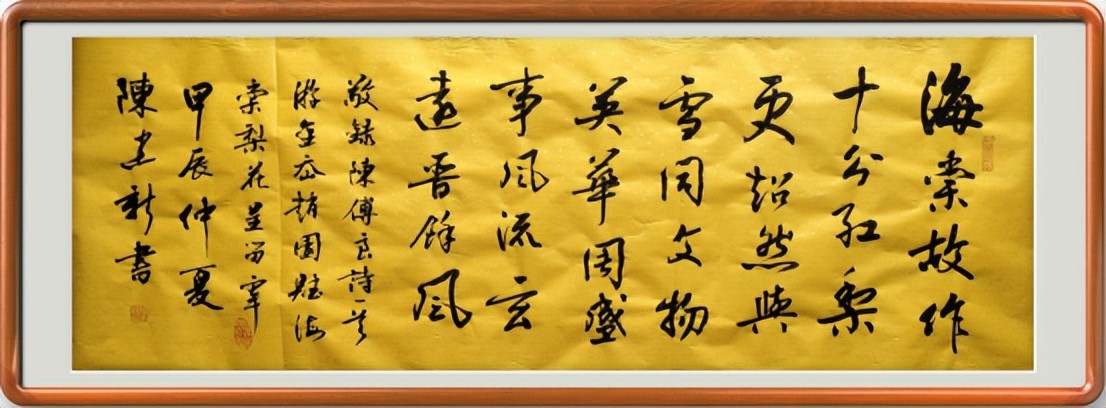 海棠故作
十分紅梨
更超然與
雪同文物
英華周盛
事風流云
遠晋餘風
敬録陳傅良詩一首
游金趙園賦海
棠梨花呈留宰
甲辰仲夏
陳建新書